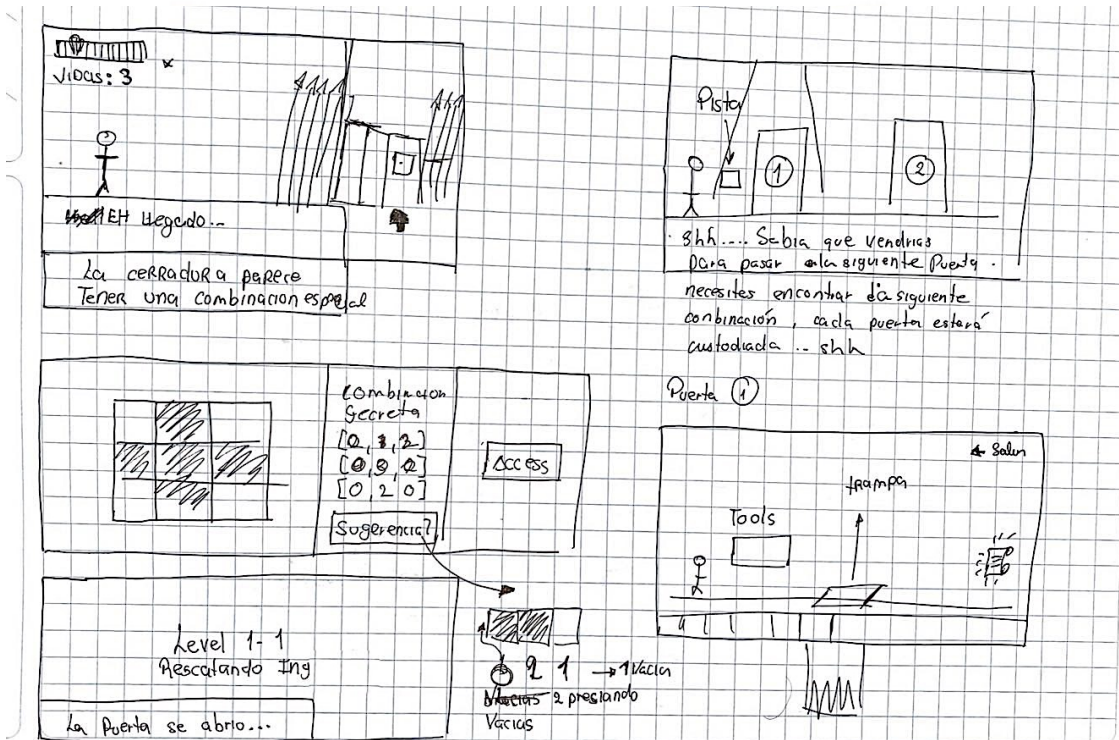 Vidas: 3
EH llegado...
La cerradura parece
Tener una combinacion especial
Pista
1
2
shh.... Sabia que vendrias
para pasar a la siguiente Puerta.
necesites encontrar la siguiente
conbinación, cada puerta estará
custodiada .. shh
Combinacion
Secreta
[0, 2]
[0]
[0, 2 0]
Sugerencia?
Access
Level 1-1
Rescatando Ing
La Puerta se abrio...
2 1 → 1 Vacia
2 presiando
Vacias
Puerta 1
← Salir
trampa
Tools